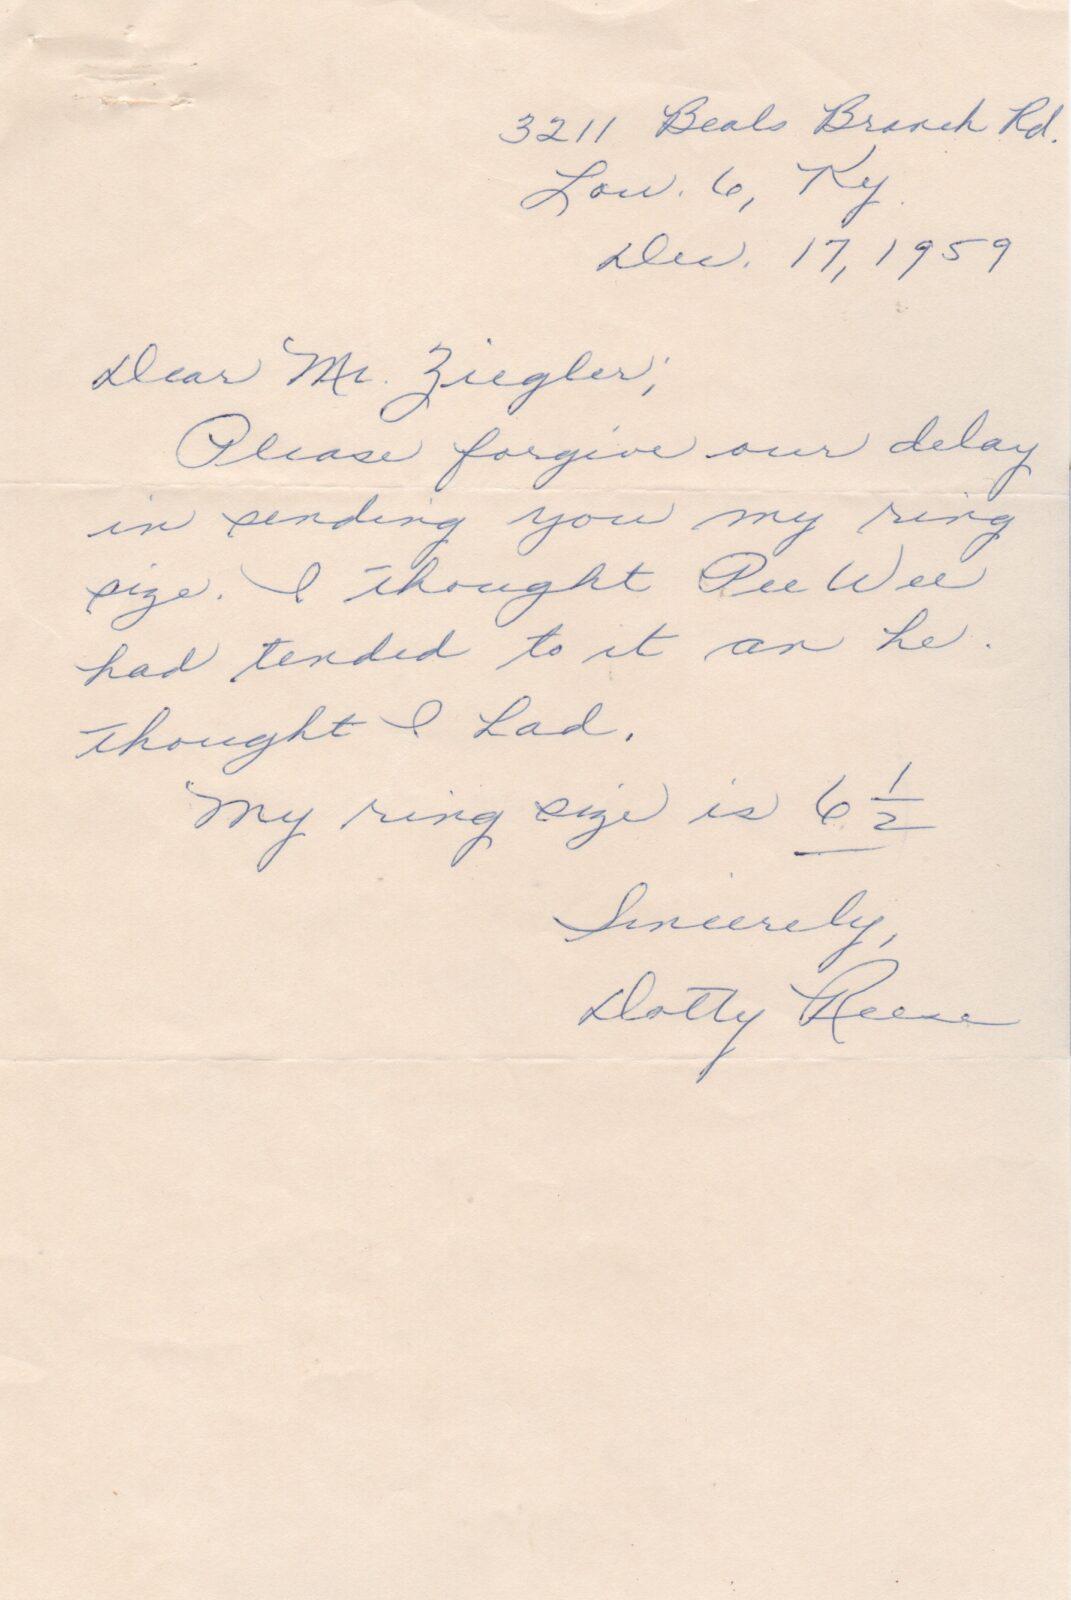 3211 Beals Branch Rd.
Lou. 6, Ky.
Dec. 17, 1959
Dear Mr. Ziegler;
Please forgive our delay
in sending you my ring
size. I thought Pee Wee
had tended to it an he
thought I had.
My ring size is 6 1/2
Sincerely,
Dotty Reese